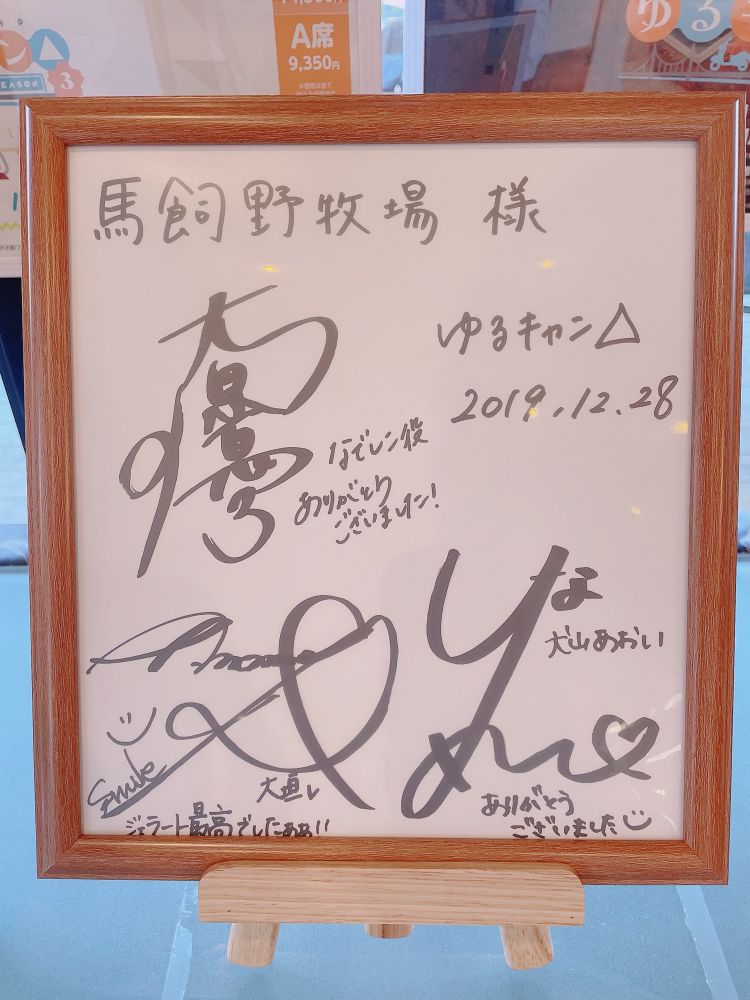 A席
9,350円
SEASON
3
ゆる
馬飼野牧場 様
ゆるキャン△
2019.12.28
なでしこ役
ありがとう
ございました!
犬山あおい
smile
大垣
ジェラート最高でしたぁぁ!!
ありがとう
ございました